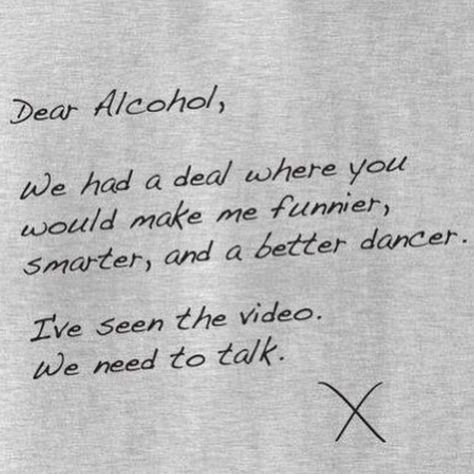 Dear Alcohol,
We had a deal where you
would make me funnier,
smarter, and a better dancer.
I've seen the video.
We need to talk.
X